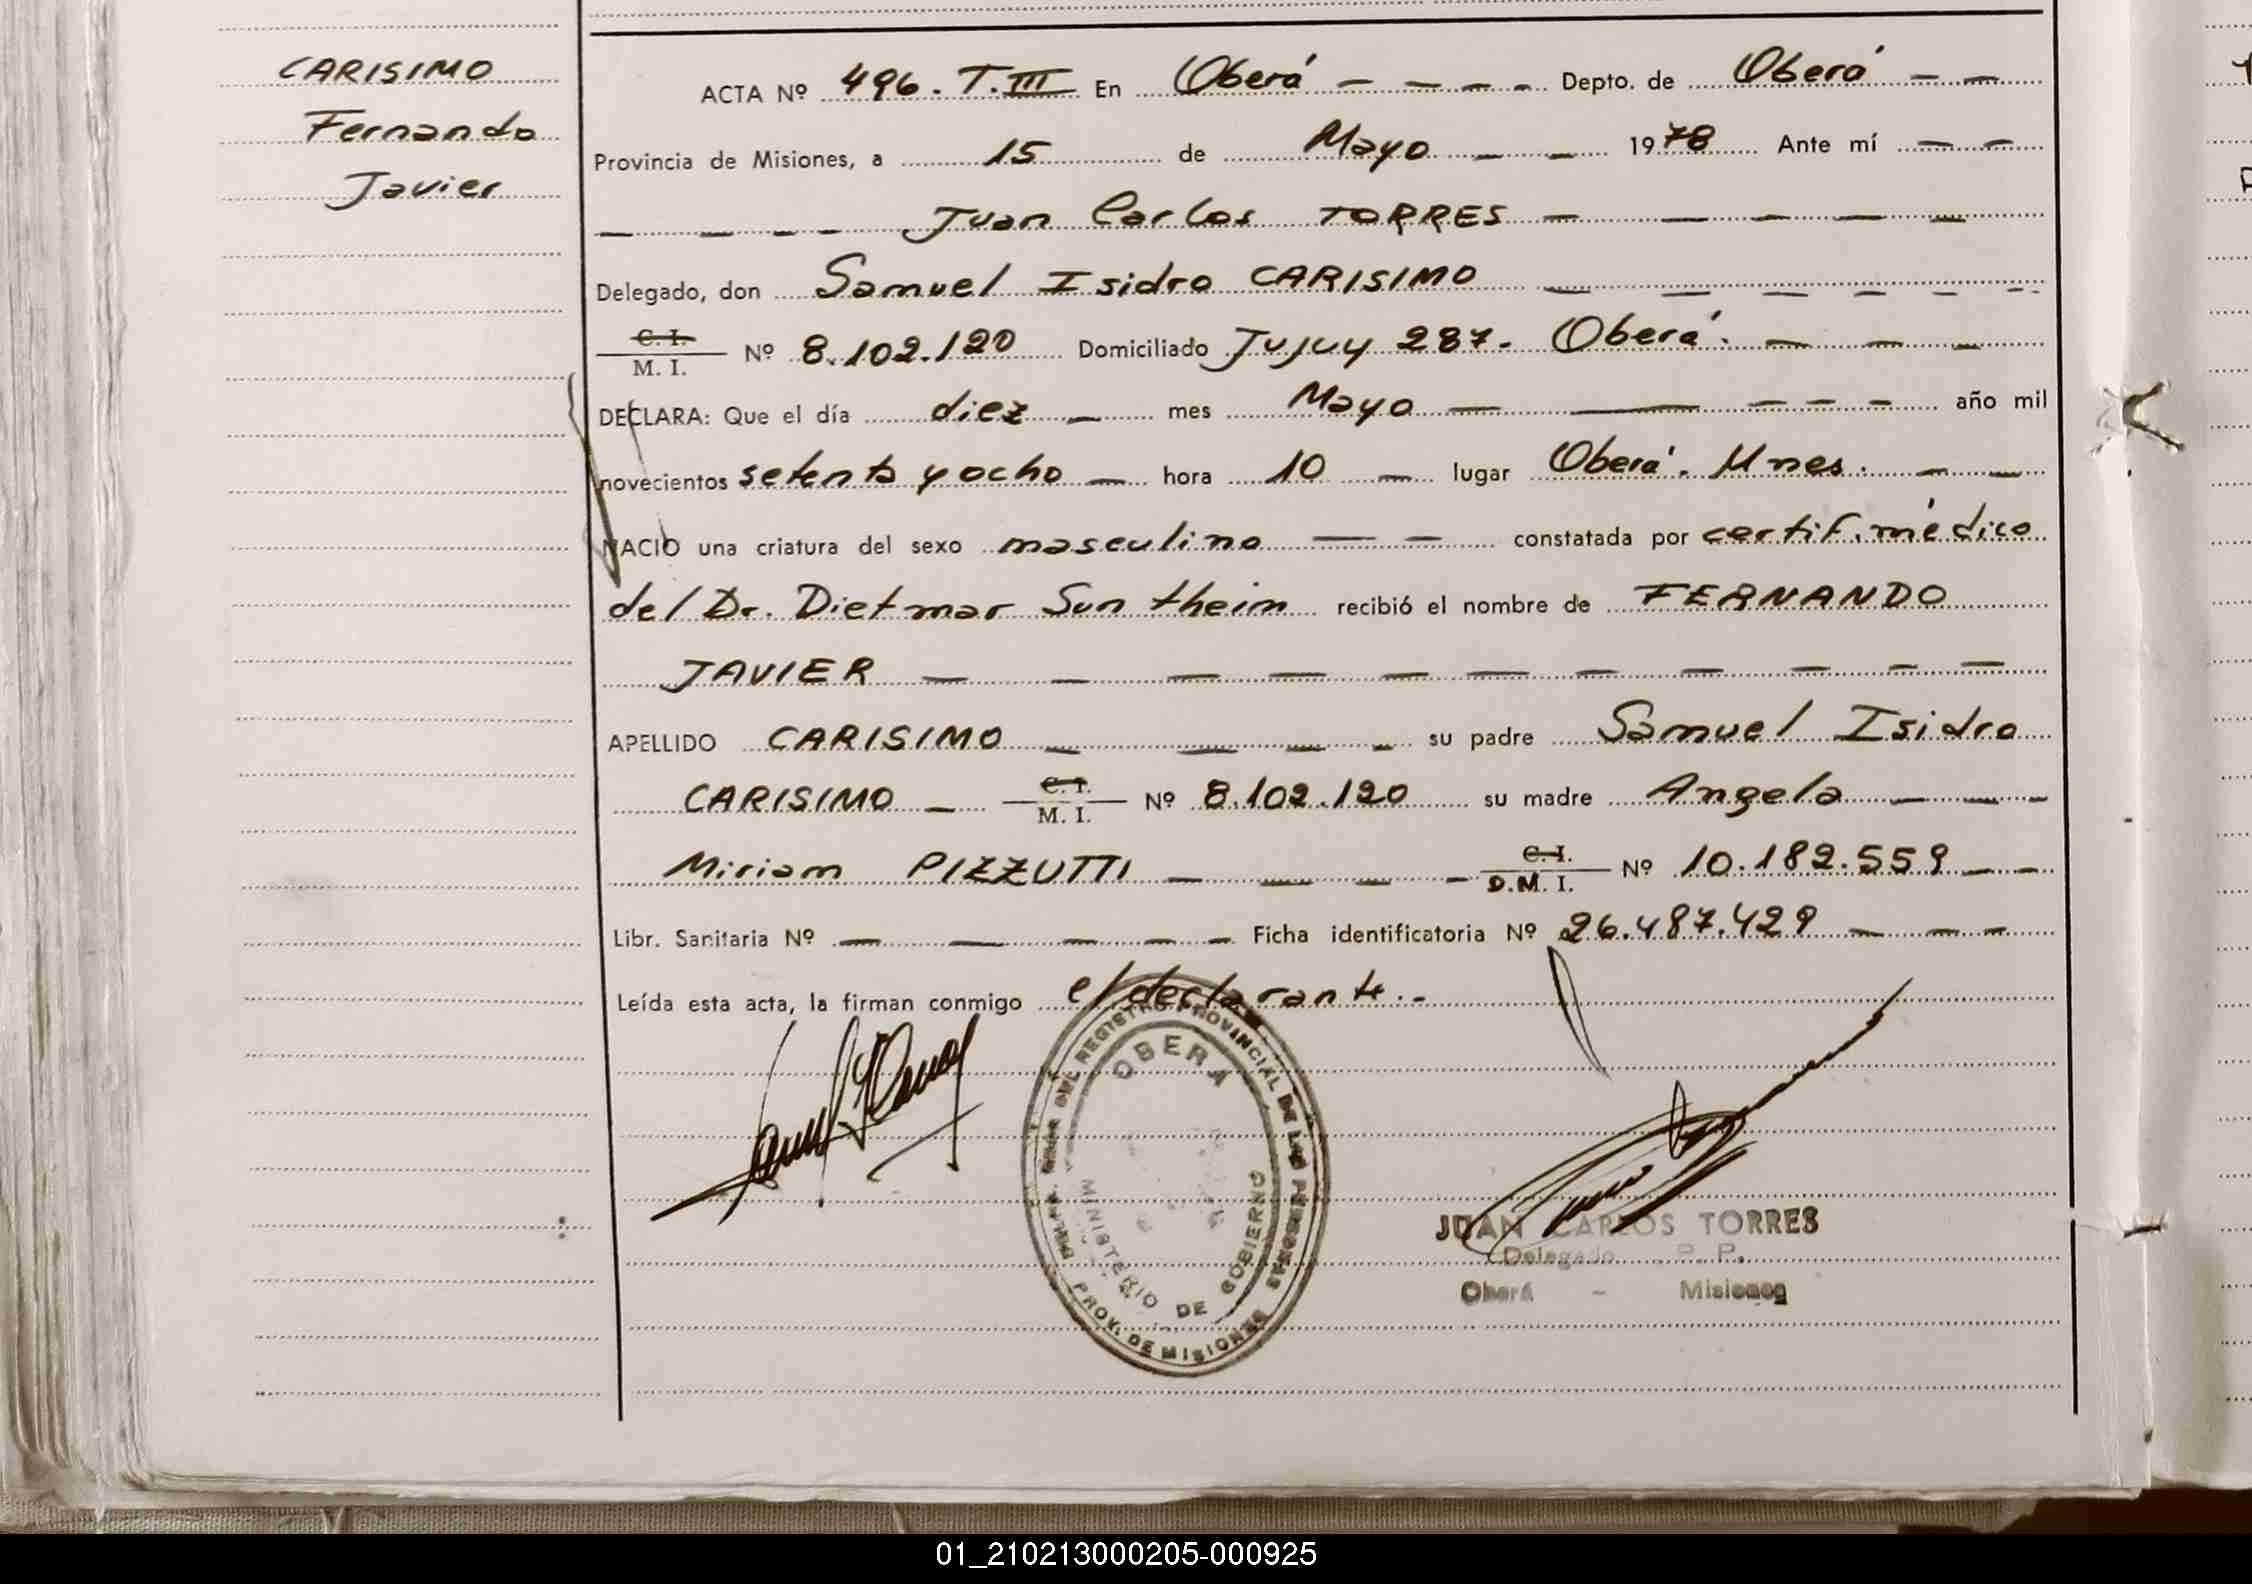 CARISIMO
Fernando
Javier
ACTA Nº 496. T. III En Oberá Depto. de Oberá
Provincia de Misiones, a 15 de Mayo 1978 Ante mí
Juan Carlos TORRES
Delegado, don Samuel Isidro CARISIMO
C. I.
M. I. Nº 8.102.120 Domiciliado Jujuy 287. Oberá.
DECLARA: Que el día diez mes Mayo año mil
novecientos setenta y ocho hora 10 lugar Oberá. Mnes.
NACIO una criatura del sexo masculino constatada por certif. médico
del Dr. Dietmar Sun theim recibió el nombre de FERNANDO
JAVIER
APELLIDO CARISIMO su padre Samuel Isidro
CARISIMO C. I. M. I. Nº 8.102.120 su madre Angela
Miriam PIZZUTTI C. I. D.M. I. Nº 10.182.559
Libr. Sanitaria Nº Ficha identificatoria Nº 26.487.429
Leída esta acta, la firman conmigo el declarante.-
DEL REGISTRO PROVINCIAL DE LAS PERSONAS
OBERA
MINISTERIO DE GOBIERNO
PROV. DE MISIONES
JUAN CARLOS TORRES
Delegado P. P.
Oberá - Misiones
01_210213000205-000925